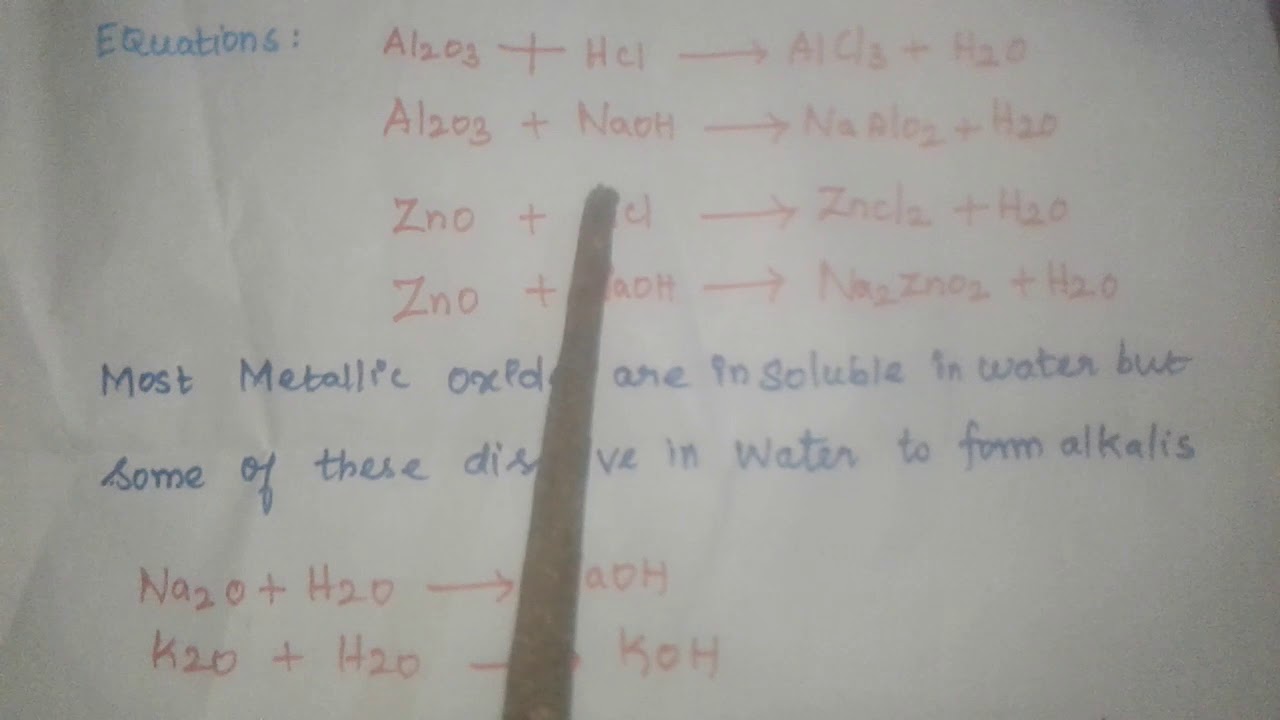 Equations: Al2O3 + HCl → AlCl3 + H2O
Al2O3 + NaOH → NaAlO2 + H2O
ZnO + Cl → ZnCl2 + H2O
ZnO + aOH → Na2ZnO2 + H2O
Most Metallic oxid are insoluble in water but
some of these dis ve in water to form alkalis
Na2O + H2O → aOH
K2O + H2O → KOH